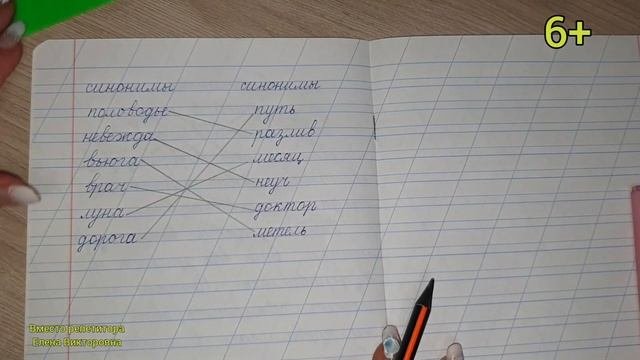 6+
синонимы синонимы
половодье путь
невежда разлив
вьюга месяц
врач неуч
луна доктор
дорога метель
Вместо репетитора
Елена Викторовна